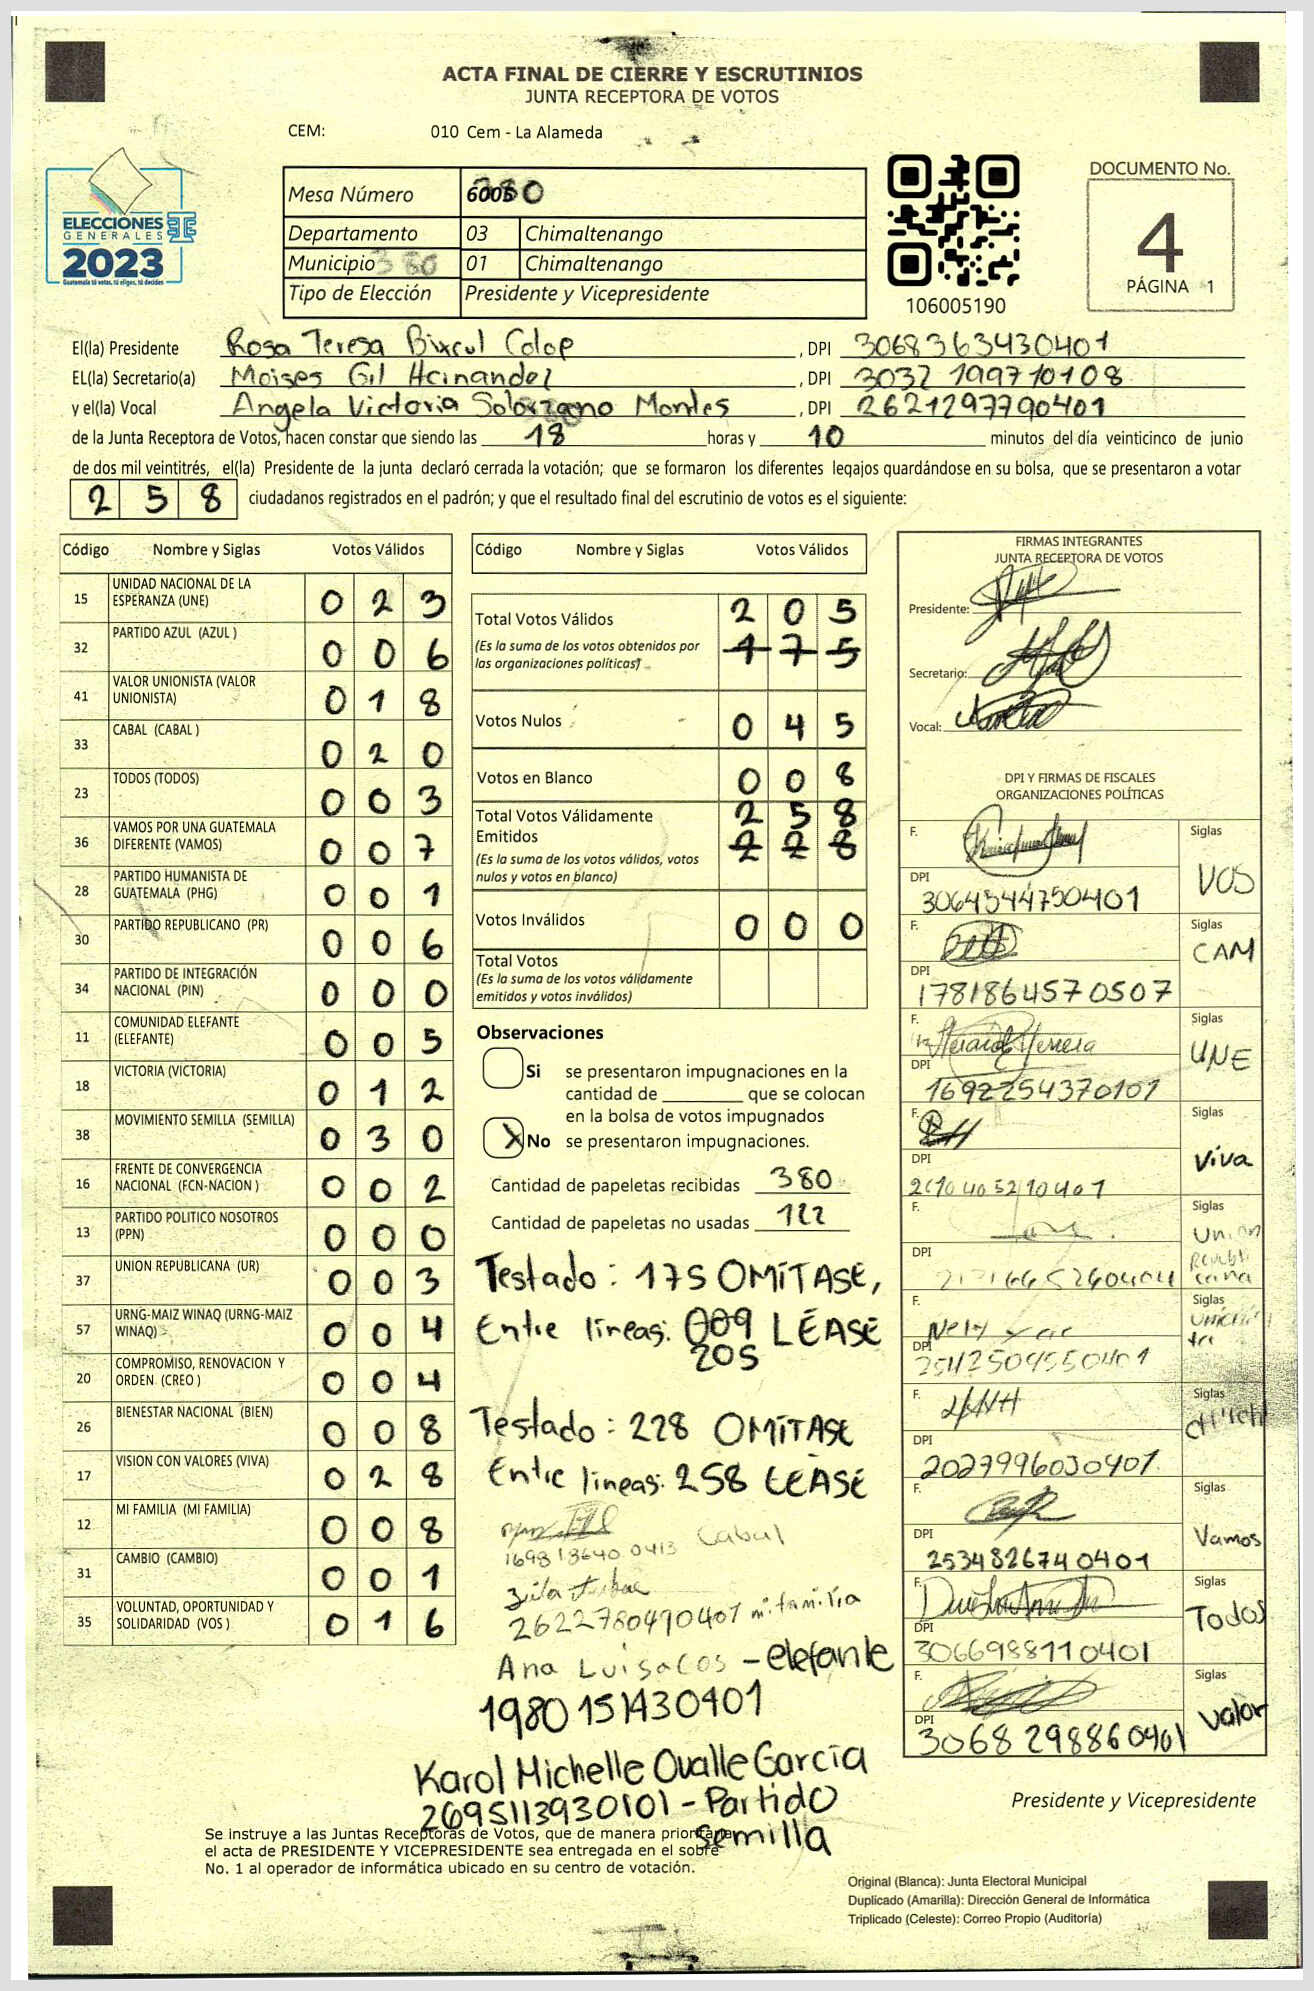 ACTA FINAL DE CIERRE Y ESCRUTINIOS
JUNTA RECEPTORA DE VOTOS
CEM: 010 Cem - La Alameda
ELECCIONES
GENERALES
2023
Guatemala tú votas, tú eliges, tú decides
Mesa Número
Departamento 03 Chimaltenango
Municipio 380 01 Chimaltenango
Tipo de Elección Presidente y Vicepresidente
106005190
DOCUMENTO No.
4
PÁGINA 1
El(la) Presidente Rosa Teresa Bixcul Colop, DPI 3068363430401
EL(la) Secretario(a) Moises Gil Hernandez, DPI 3032199710108
y el(la) Vocal Angela Victoria Solorzano Montes, DPI 2621297790401
de la Junta Receptora de Votos, hacen constar que siendo las 18 horas y 10 minutos del día veinticinco de junio
de dos mil veintitrés, el(la) Presidente de la junta declaró cerrada la votación; que se formaron los diferentes legajos guardándose en su bolsa, que se presentaron a votar
2 5 8 ciudadanos registrados en el padrón; y que el resultado final del escrutinio de votos es el siguiente:
Código Nombre y Siglas Votos Válidos
15 UNIDAD NACIONAL DE LA ESPERANZA (UNE) 0 2 3
32 PARTIDO AZUL (AZUL ) 0 0 6
41 VALOR UNIONISTA (VALOR UNIONISTA) 0 1 8
33 CABAL (CABAL ) 0 2 0
23 TODOS (TODOS) 0 0 3
36 VAMOS POR UNA GUATEMALA DIFERENTE (VAMOS) 0 0 7
28 PARTIDO HUMANISTA DE GUATEMALA (PHG) 0 0 1
30 PARTIDO REPUBLICANO (PR) 0 0 6
34 PARTIDO DE INTEGRACIÓN NACIONAL (PIN) 0 0 0
11 COMUNIDAD ELEFANTE (ELEFANTE) 0 0 5
18 VICTORIA (VICTORIA) 0 1 2
38 MOVIMIENTO SEMILLA (SEMILLA) 0 3 0
16 FRENTE DE CONVERGENCIA NACIONAL (FCN-NACION ) 0 0 2
13 PARTIDO POLITICO NOSOTROS (PPN) 0 0 0
37 UNION REPUBLICANA (UR) 0 0 3
57 URNG-MAIZ WINAQ (URNG-MAIZ WINAQ) 0 0 4
20 COMPROMISO, RENOVACION Y ORDEN (CREO ) 0 0 4
26 BIENESTAR NACIONAL (BIEN) 0 0 8
17 VISION CON VALORES (VIVA) 0 2 8
12 MI FAMILIA (MI FAMILIA) 0 0 8
31 CAMBIO (CAMBIO) 0 0 1
35 VOLUNTAD, OPORTUNIDAD Y SOLIDARIDAD (VOS ) 0 1 6
Código Nombre y Siglas Votos Válidos
Total Votos Válidos 2 0 5
(Es la suma de los votos obtenidos por las organizaciones políticas) 1 7 5
Votos Nulos 0 4 5
Votos en Blanco 0 0 8
Total Votos Válidamente Emitidos 2 5 8
(Es la suma de los votos válidos, votos nulos y votos en blanco) 2 2 8
Votos Inválidos 0 0 0
Total Votos
(Es la suma de los votos válidamente emitidos y votos inválidos)
Observaciones
Si se presentaron impugnaciones en la
cantidad de ________ que se colocan
en la bolsa de votos impugnados
X No se presentaron impugnaciones.
Cantidad de papeletas recibidas 380
Cantidad de papeletas no usadas 122
Testado: 175 OMITASE,
Entre lineas: 009 LEASE
205
Testado: 228 OMITASE
Entre lineas: 258 LEASE
Cabal
2622780490401 mi familia
Ana Luisa Cos - elefante
1980151430401
Karol Michelle Ovalle García
2695113930101 - Partido
semilla
FIRMAS INTEGRANTES
JUNTA RECEPTORA DE VOTOS
Presidente:
Secretario:
Vocal:
DPI Y FIRMAS DE FISCALES
ORGANIZACIONES POLÍTICAS
F. Siglas VOS
DPI 3064544750401
F. Siglas CAM
DPI 1781864570507
F. Siglas UNE
DPI 1692254370101
F. Siglas Viva
DPI
F. Siglas Union Republicana
DPI
F. Siglas
DPI 2542509550401
F. Siglas
DPI 2027996030401
F. Siglas Vamos
DPI 2534826740401
F. Siglas Todos
DPI 3066988110401
F. Siglas Valor
DPI 3068298860401
Presidente y Vicepresidente
Se instruye a las Juntas Receptoras de Votos, que de manera prioritaria
el acta de PRESIDENTE Y VICEPRESIDENTE sea entregada en el sobre
No. 1 al operador de informática ubicado en su centro de votación.
Original (Blanca): Junta Electoral Municipal
Duplicado (Amarilla): Dirección General de Informática
Triplicado (Celeste): Correo Propio (Auditoría)